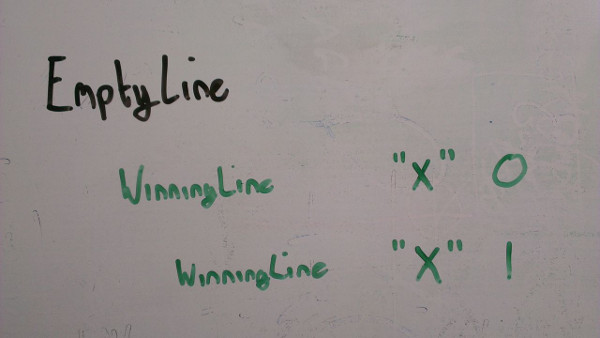 EmptyLine
WinningLine "X" 0
WinningLine "X" 1